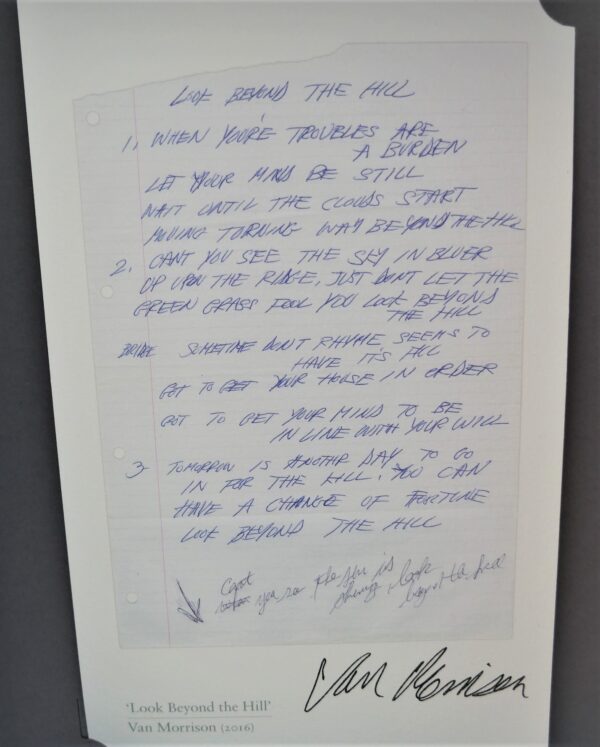 LOOK BEYOND THE HILL
1, WHEN YOU'RE TROUBLES ARE
A BURDEN
LET YOUR MIND BE STILL
WAIT UNTIL THE CLOUDS START
MOVING TURNING WAY BEYOND THE HILL
2. CANT YOU SEE THE SKY IN BLUER
UP UPON THE RIDGE, JUST DONT LET THE
GREEN GRASS FOOL YOU LOOK BEYOND
THE HILL
BRIDGE SOMETIME DON'T RHYME SEEMS TO
HAVE IT'S
GOT TO GET YOUR HOUSE IN ORDER
GOT TO GET YOUR MIND TO BE
IN LINE WITH YOUR WILL
3- TOMORROW IS ANOTHR DAY TO GO
IN FOR THE KILL. YOU CAN
HAVE A CHANGE OF FORTUNE
LOOK BEYOND THE HILL
Cant
you see the sun is
look
beyond the hill
Van Morrison
'Look Beyond the Hill'
Van Morrison (2016)